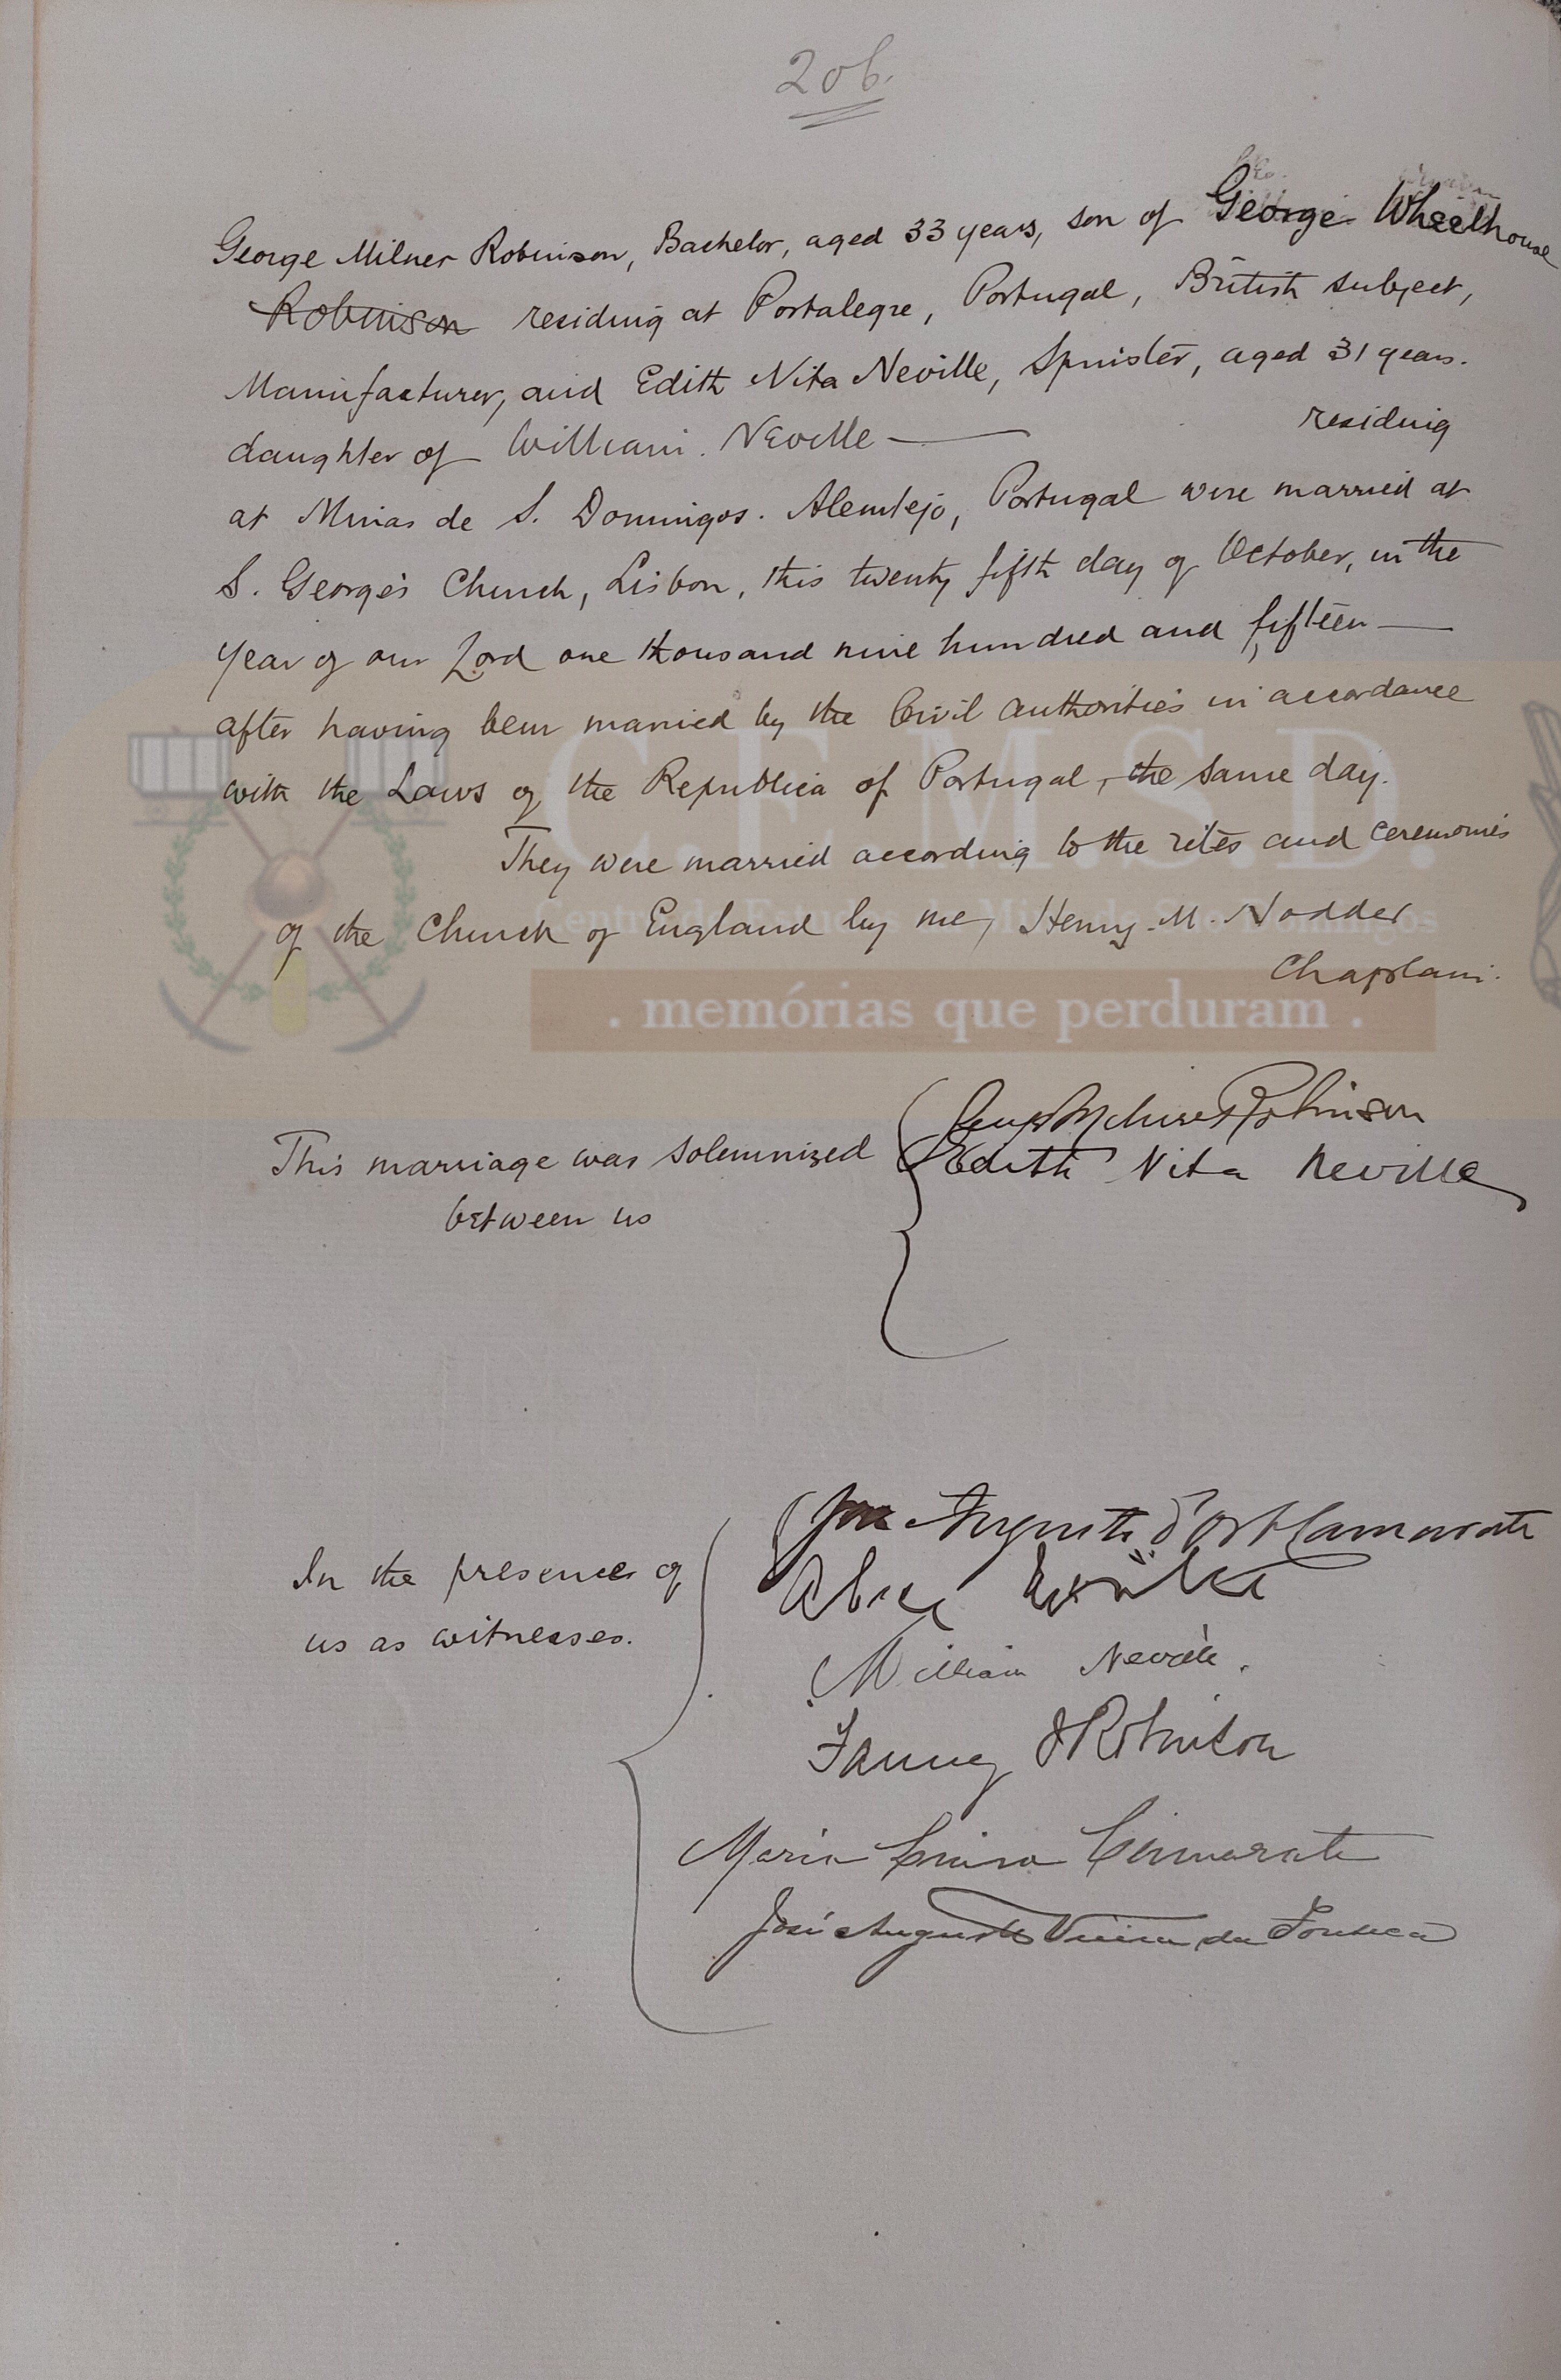 206.
George Milner Robinson, Bachelor, aged 33 years, son of George Wheelhouse
Robinson residing at Portalegre, Portugal, British subject,
Manufacturer, and Edith Nita Neville, Spinster, aged 31 years.
daughter of William. Neville — residing
at Minas de S. Domingos. Alemtejo, Portugal were married at
S. George's Church, Lisbon, this twenty fifth day of October, in the
year of our Lord one thousand nine hundred and fifteen —
after having been married by the Civil authorities in accordance
with the Laws of the Republica of Portugal, the same day.
They were married according to the rites and ceremonies
of the Church of England by me, Henry. M. Nodder
Chaplain.
C.E.M.S.D.
Centro de Estudos da Mina de São Domingos
. memórias que perduram .
This marriage was solemnized
between us
George Milner Robinson
Edith Nita Neville
In the presence of
us as witnesses.
Augusto d'Ort Cammarate
William Neville.
Fanny Robinson
Maria Cammarate
José Augusto Vieira da Fonseca